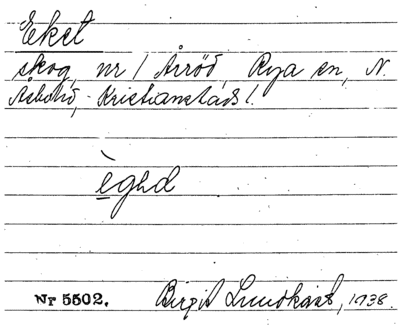 Eket
skog, nr 1 Årröd, Rya sn, N.
Åsbohd, Kristianstads l.
ègəd
Nr 5502. Birgit Lundkvist, 1938.